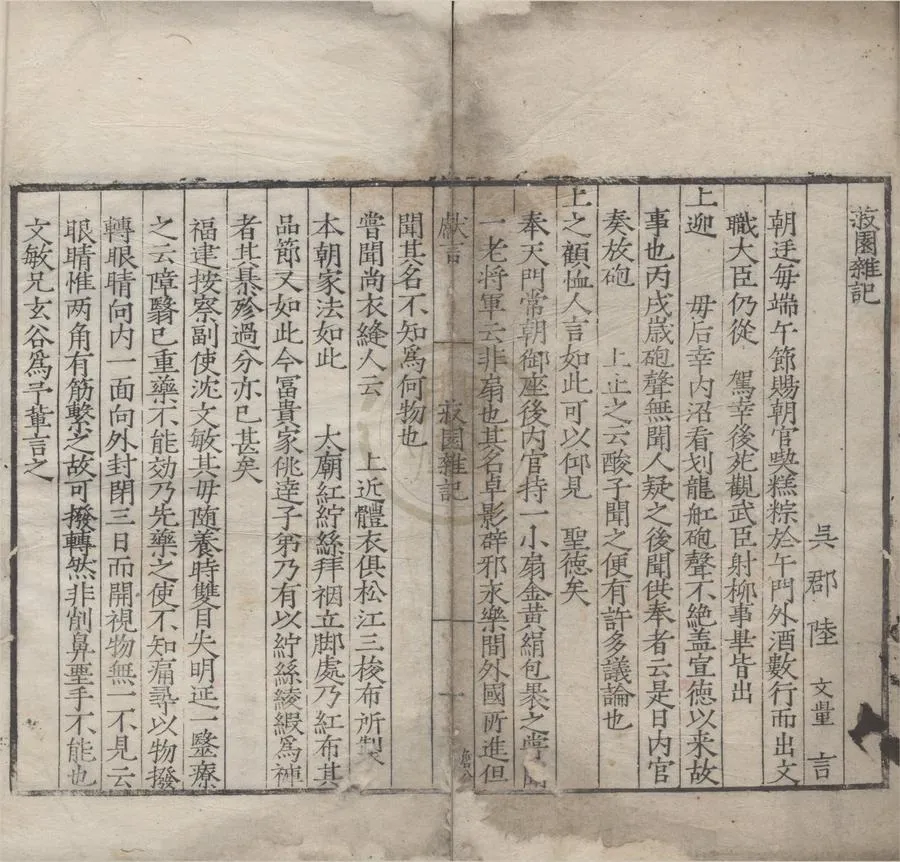 菽園雜記
吳郡陸 文量 言
朝廷每端午節賜朝官喫糕粽於午門外酒數行而出文
職大臣仍從 駕幸後苑觀武臣射柳事畢皆出
上迎 毋后幸內沼看划龍舡砲聲不絕盖宣德以來故
事也丙戌歲砲聲無聞人疑之後聞供奉者云是日內官
奏放砲 上止之云酸子聞之便有許多議論也
上之顧恤人言如此可以仰見 聖德矣
奉天門常朝御座後內官持一小扇金黃絹包裹之嘗聞
一老將軍云非扇也其名卓影辟邪永樂間外國所進但
獻言 菽園雜記 一
聞其名不知爲何物也
嘗聞尚衣縫人云 上近體衣俱松江三梭布所製
本朝家法如此 太廟紅紵絲拜裀立脚處乃紅布其
品節又如此今富貴家佻達子弟乃有以紵絲綾緞爲褲
者其暴殄過分亦已甚矣
福建按察副使沈文敏其毋随養時雙目失明延一醫療
之云障翳已重藥不能効乃先藥之使不知痛尋以物撥
轉眼睛向內一面向外封閉三日而開視物無一不見云
眼睛惟两角有筋繫之故可撥轉然非削鼻堊手不能也
文敏兄玄谷爲予輩言之